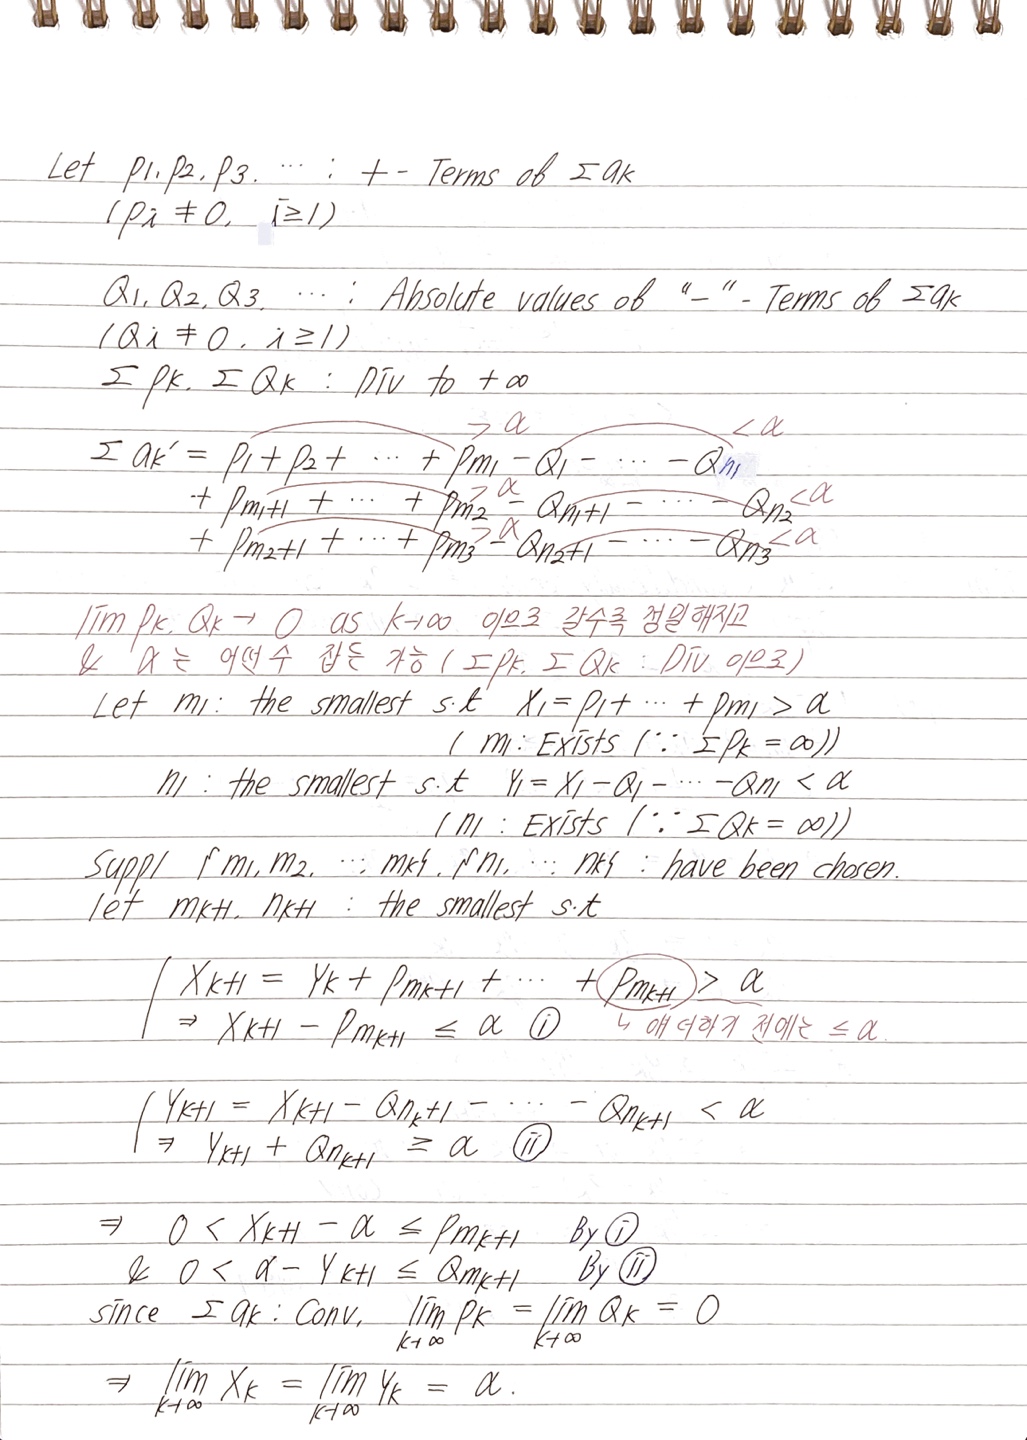 Let p1, p2, p3, ⋯ : + - Terms of Σak
(pi ≠ 0, i≥1)
Q1, Q2, Q3, ⋯ : Absolute values of "−" - Terms of Σak
(Qi ≠ 0, i ≥ 1)
Σ pk, Σ Qk : Div to +∞
> α < α
Σ ak' = p1 + p2 + ⋯ + pm1 − Q1 − ⋯ − Qn1
+ pm1+1 + ⋯ + pm2 > α − Qn1+1 − ⋯ − Qn2 < α
+ pm2+1 + ⋯ + pm3 > α − Qn2+1 − ⋯ − Qn3 < α
lim pk, Qk → 0 as k→∞ 이므로 갈수록 정밀해지고
& α는 어떤수 잡든 가능 (Σpk, Σ Qk : Div 이므로)
Let m1 : the smallest s.t X1 = p1 + ⋯ + pm1 > α
( m1 : Exists (∵ Σ pk = ∞))
n1 : the smallest s.t Y1 = X1 − Q1 − ⋯ − Qn1 < α
( n1 : Exists (∵ ΣQk = ∞))
Supp) {m1, m2, ⋯, mk}, {n1, ⋯ nk} : have been chosen.
let mk+1, nk+1 : the smallest s.t
Xk+1 = Yk + pmk+1 + ⋯ + pmk+1 > α
⇒ Xk+1 − pmk+1 ≤ α ⓘ ↳ 얘 더하기 전에는 ≤ α
Yk+1 = Xk+1 − Qnk+1 − ⋯ − Qnk+1 < α
⇒ Yk+1 + Qnk+1 ≥ α (ii)
⇒ 0 < Xk+1 − α ≤ pmk+1 By ⓘ
& 0 < α − Yk+1 ≤ Qmk+1 By (ii)
since Σ ak : Conv, lim k→∞ pk = lim k→∞ Qk = 0
⇒ lim k→∞ Xk = lim k→∞ Yk = α.